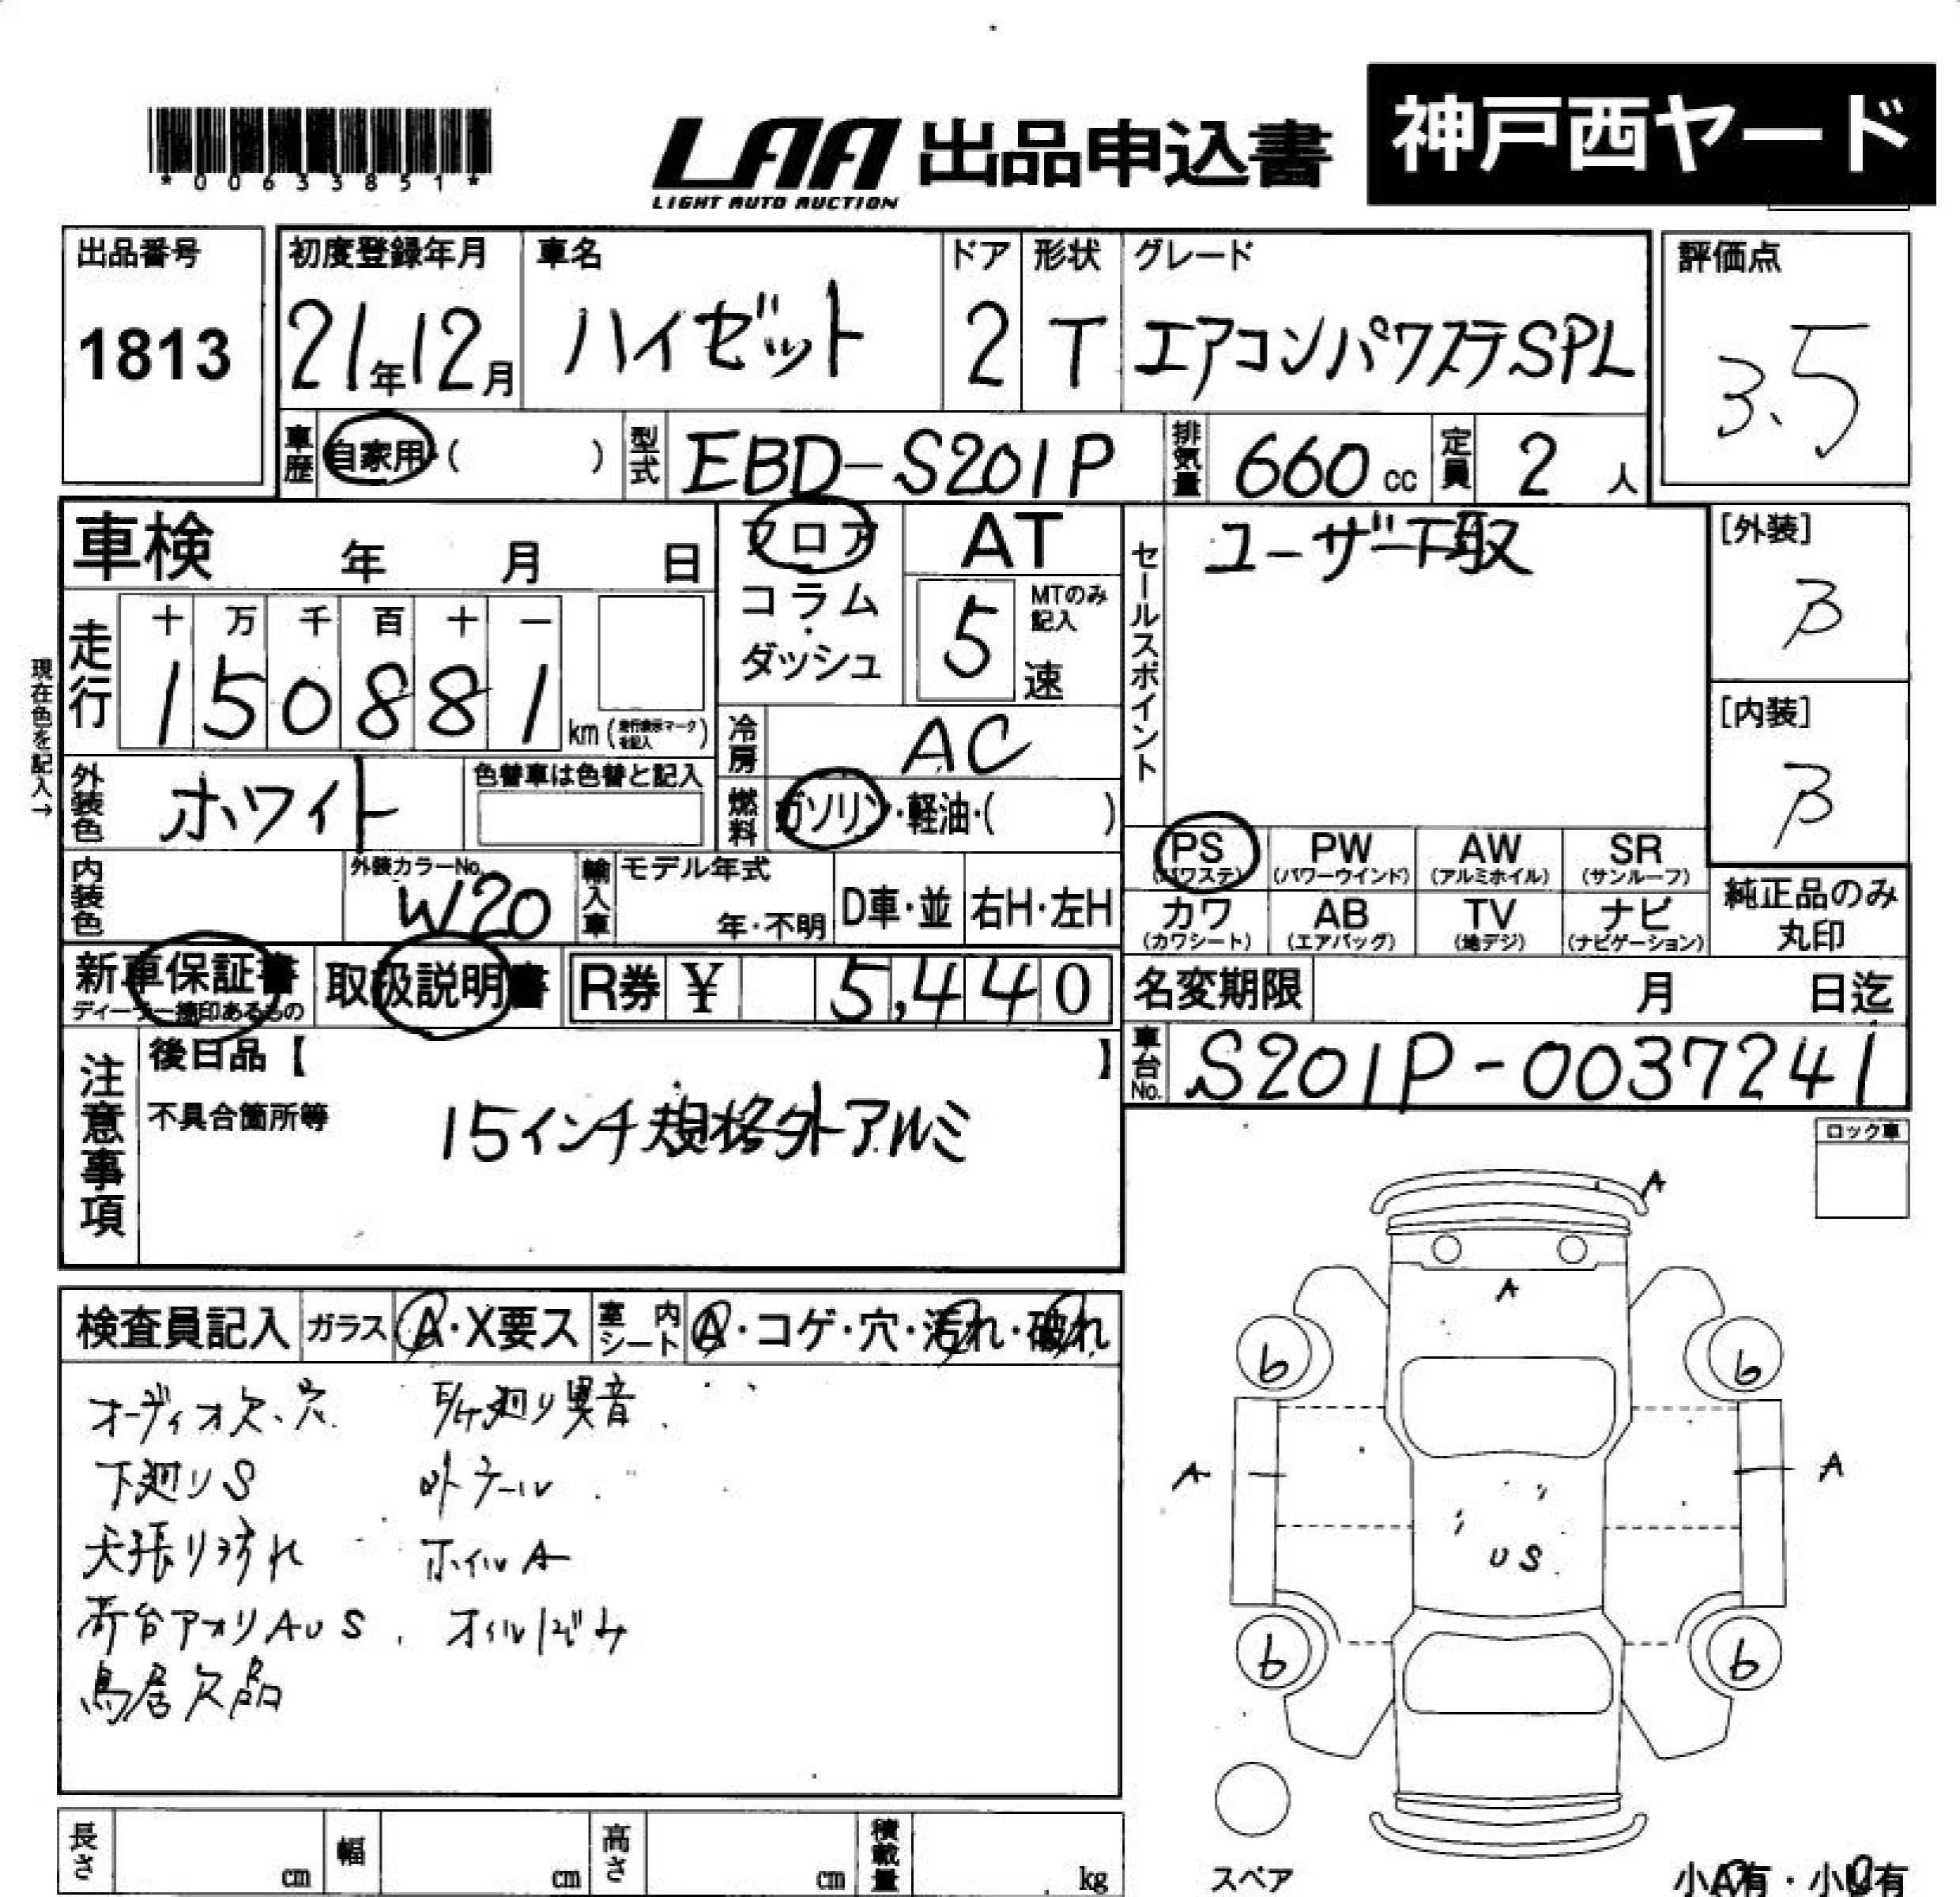 *00633851*
LAA 出品申込書 神戸西ヤード
LIGHT AUTO AUCTION
出品番号 初度登録年月 車名 ドア 形状 グレード 評価点
1813 21年12月 ハイゼット 2 T エアコンパワステSPL 3.5
車歴 自家用・( ) 型式 EBD-S201P 排気量 660cc 定員 2人
車検 年 月 日 フロア AT セールスポイント ユーザー下取 [外装]
コラム・ダッシュ 5速 MTのみ記入 B
走行 十 万 千 百 十 一
150881 km
現在色を記入→
冷房 AC [内装]
外装色 ホワイト 色替車は色替と記入 燃料 ガソリン・軽油・( ) B
PS PW AW SR
(パワステ) (パワーウインド) (アルミホイル) (サンルーフ)
内装色 外装カラーNo. W20 輸入車 モデル年式 年・不明 D車・並 右H・左H
カワ AB TV ナビ 純正品のみ
(カワシート) (エアバッグ) (地デジ) (ナビゲーション) 丸印
新車保証書 取扱説明書 R券 ¥ 5,440 名変期限 月 日迄
注意事項 後日品【 】 車台No. S201P-0037241
不具合箇所等 15インチ規格外アルミ
ロック車
A
検査員記入 ガラス A・X要ス 室内シート A・コゲ・穴・汚れ・破れ
A
b b
オーディオ欠、穴 廻り異音
下廻りS 外テール
A A
天張りヨゴれ ホイルA
U S
荷台アオリAUS. オイルにじみ
b b
鳥居欠品
長さ cm 幅 cm 高さ cm 積載量 kg
スペア 小A有・小U有